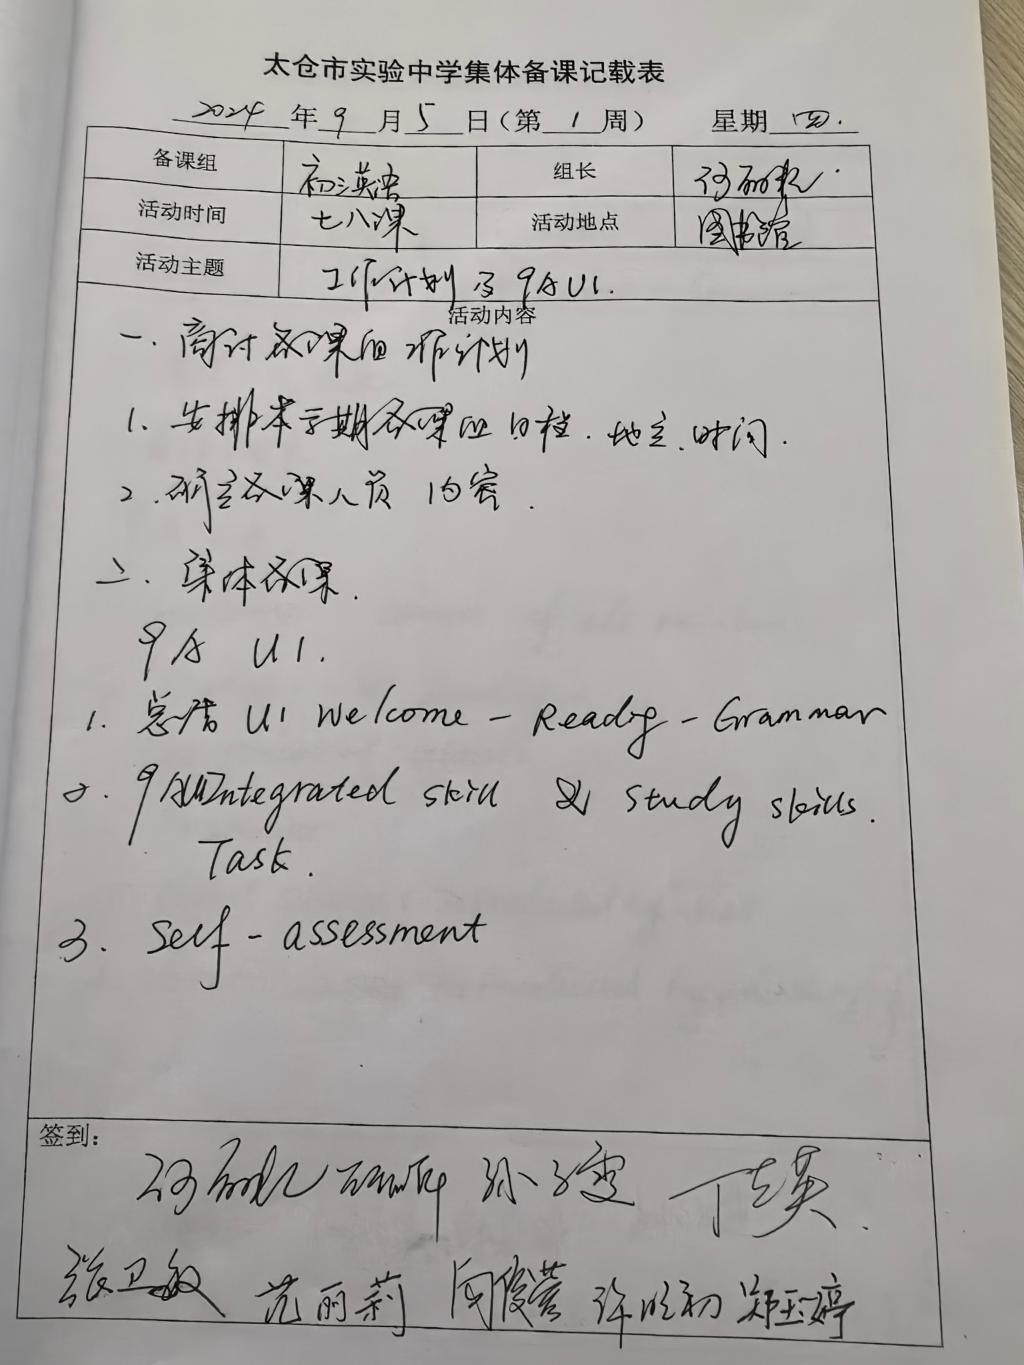 太仓市实验中学集体备课记载表
2024 年 9 月 5 日（第 1 周） 星期 四.
备课组 初三英语 组长
活动时间 七八课 活动地点 图书馆
活动主题 工作计划及9A U1.
活动内容
一. 商讨备课组工作计划
1. 安排本学期备课组日程. 地点. 时间.
2. 确定备课人员 内容.
二. 集体备课.
9A U1.
1. 总结 U1 Welcome - Readig - Grammar
2. 9AU1Integrated skill 及 study skills.
Task.
3. Self - assessment
签到:
张卫敏 范丽莉 周俊萱